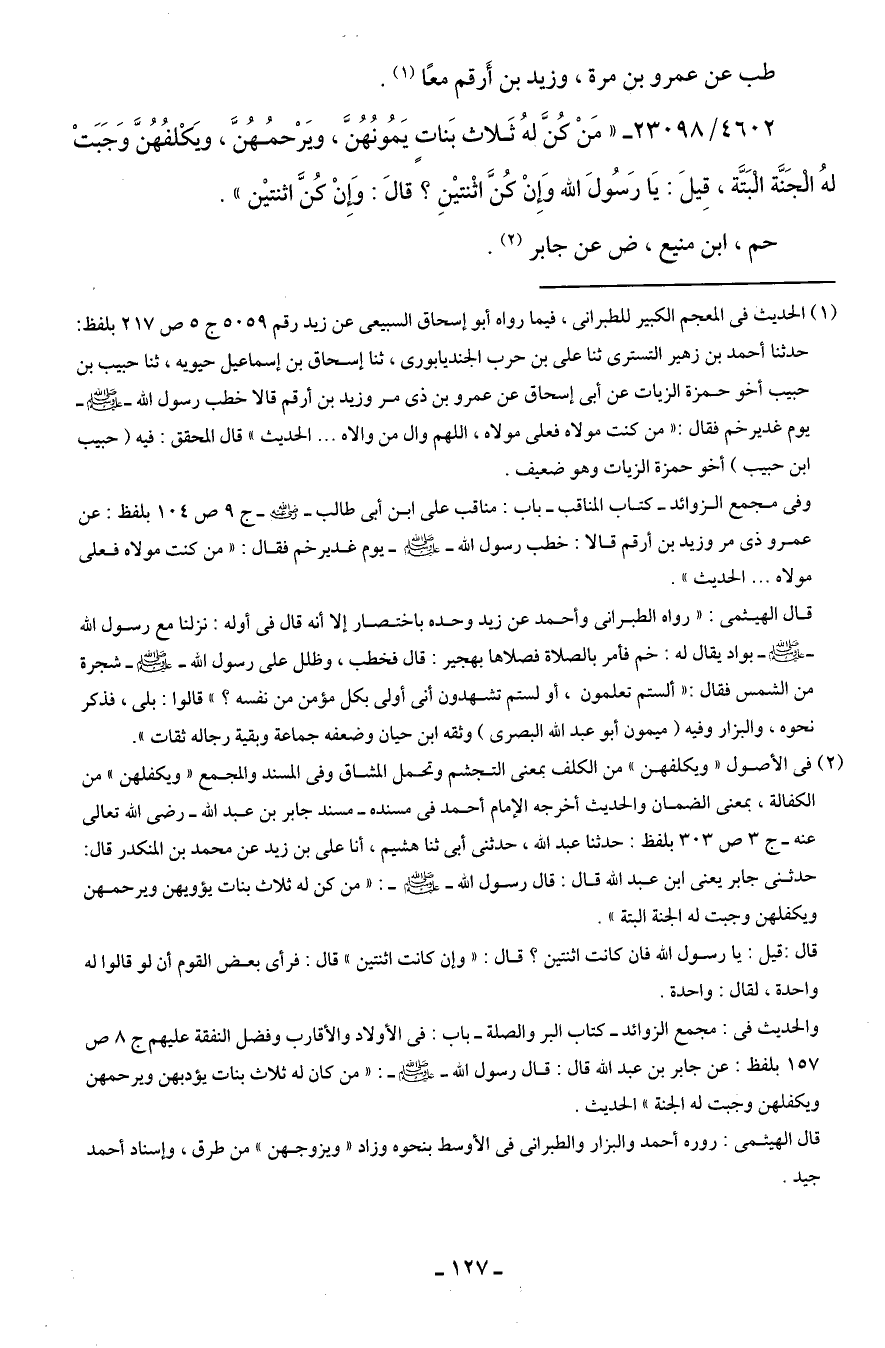 طب عن عمرو بن مرة ، وزيد بن أَرقم معًا (١) .
٢٣٠٩٨/٤٦٠٢ـ « مَنْ كُنَّ لهُ ثَلاث بَناتٍ يَمُونُهُنَّ ، ويَرْحمُهُنَّ ، ويَكْلفُهُنَّ وَجَبَتْ
لهُ الْجَنَّة الْبَتَّة ، قِيلَ : يَا رَسُولَ الله وَإِنْ كُنَّ اثْنتيْنِ ؟ قالَ : وَإِنْ كُنَّ اثنتيْن » .
حم ، ابن منيع ، ض عن جابر (٢) .
(١) الحديث فى المعجم الكبير للطبرانى ، فيما رواه أبو إسحاق السبيعى عن زيد رقم ٥٠٥٩ ج ٥ ص ٢١٧ بلفظ:
حدثنا أحمد بن زهير التسترى ثنا على بن حرب الجنديابورى ، ثنا إسحاق بن إسماعيل حيويه ، ثنا حبيب بن
حبيب أخو حمزة الزيات عن أبى إسحاق عن عمرو بن ذى مر وزيد بن أرقم قالا خطب رسول الله ـ ﷺ ـ
يوم غديرخم فقال :« من كنت مولاه فعلى مولاه ، اللهم وال من والاه ... الحديث » قال المحقق : فيه ( حبيب
ابن حبيب ) أخو حمزة الزيات وهو ضعيف .
وفى مجمع الزوائد ـ كتاب المناقب ـ باب : مناقب على ابن أبى طالب ـ رضي الله عنه ـ ج ٩ ص ١٠٤ بلفظ : عن
عمرو ذى مر وزيد بن أرقم قالا : خطب رسول الله ـ ﷺ ـ يوم غديرخم فقال : « من كنت مولاه فعلى
مولاه ... الحديث » .
قال الهيثمى : « رواه الطبرانى وأحمد عن زيد وحده باختصار إلا أنه قال فى أوله : نزلنا مع رسول الله
ـ ﷺ ـ بواد يقال له : خم فأمر بالصلاة فصلاها بهجير : قال فخطب ، وظلل على رسول الله ـ ﷺ ـ شجرة
من الشمس فقال :« ألستم تعلمون ، أو لستم تشهدون أنى أولى بكل مؤمن من نفسه ؟ » قالوا : بلى ، فذكر
نحوه ، والبزار وفيه ( ميمون أبو عبد الله البصرى ) وثقه ابن حيان وضعفه جماعة وبقية رجاله ثقات ».
(٢) فى الأصول « ويكلفهن » من الكلف بمعنى التجشم وتحمل المشاق وفى المسند والمجمع « ويكفلهن » من
الكفالة ، بمعنى الضمان والحديث أخرجه الإمام أحمد فى مسنده ـ مسند جابر بن عبد الله ـ رضى الله تعالى
عنه ـ ج ٣ ص ٣٠٣ بلفظ : حدثنا عبد الله ، حدثنى أبى ثنا هشيم ، أنا على بن زيد عن محمد بن المنكدر قال:
حدثنى جابر يعنى ابن عبد الله قال : قال رسول الله ـ ﷺ ـ : « من كن له ثلاث بنات يؤويهن ويرحمهن
ويكفلهن وجبت له الجنة البتة » .
قال :قيل : يا رسول الله فان كانت اثنتين ؟ قال : « وإن كانت اثنتين » قال : فرأى بعض القوم أن لو قالوا له
واحدة ، لقال : واحدة .
والحديث فى : مجمع الزوائد ـ كتاب البر والصلة ـ باب : فى الأولاد والأقارب وفضل النفقة عليهم ج ٨ ص
١٥٧ بلفظ : عن جابر بن عبد الله قال : قال رسول الله ـ ﷺ ـ : « من كان له ثلاث بنات يؤدبهن ويرحمهن
ويكفلهن وجبت له الجنة » الحديث .
قال الهيثمى : روره أحمد والبزار والطبرانى فى الأوسط بنحوه وزاد « ويزوجهن » من طرق ، وإسناد أحمد
جيد .
ـ ١٢٧ ـ